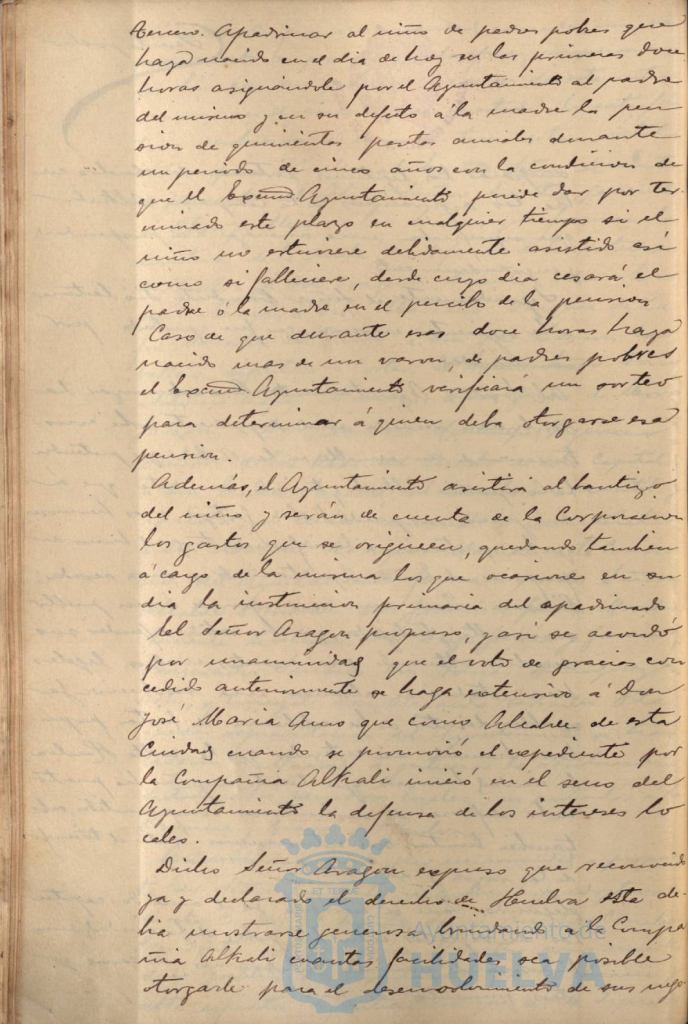 Tercero. Apadrinar al niño de padres pobres que
haya nacido en el dia de hoy en las primeras doce
horas asignándole por el Ayuntamiento al padre
del mismo y en su defecto á la madre la pen
sion de quinientas pesetas anuales durante
un periodo de cinco años con la condicion de
que el Excmo Ayuntamiento puede dar por ter-
minado este plazo en cualquier tiempo si el
niño no estuviere debidamente asistido así
como si falleciere, desde cuyo dia cesará el
padre ó la madre en el percibo de la pension
Caso de que durante esas doce horas haya
nacido mas de un varon, de padres pobres
el Excmo Ayuntamiento verificará un sorteo
para determinar á quien deba otorgarse esa
pension.
Además, el Ayuntamiento asistirá al bautizo
del niño y serán de cuenta de la Corporacion
los gastos que se originen, quedando tambien
á cargo de la misma los que ocasione en su
dia la instruccion primaria del apadrinado.
El Señor Aragon propuso, y asi se acordó
por unanimidad que el voto de gracias con
cedido anteriormente se haga extensivo á Don
José Maria Amo que como Alcalde de esta
Ciudad cuando se promovió el expediente por
la Compañia Alkali inició en el seno del
Ayuntamiento la defensa de los intereses lo
cales.
Dicho Señor Aragon expuso que reconocido
ya y declarado el derecho de Huelva esta de-
bia mostrarse generosa brindando a la Compa
ñia Alkali cuantas facilidades sea posible
otorgarle para el desenvolvimiento de sus nego
Ayuntamiento de
HUELVA